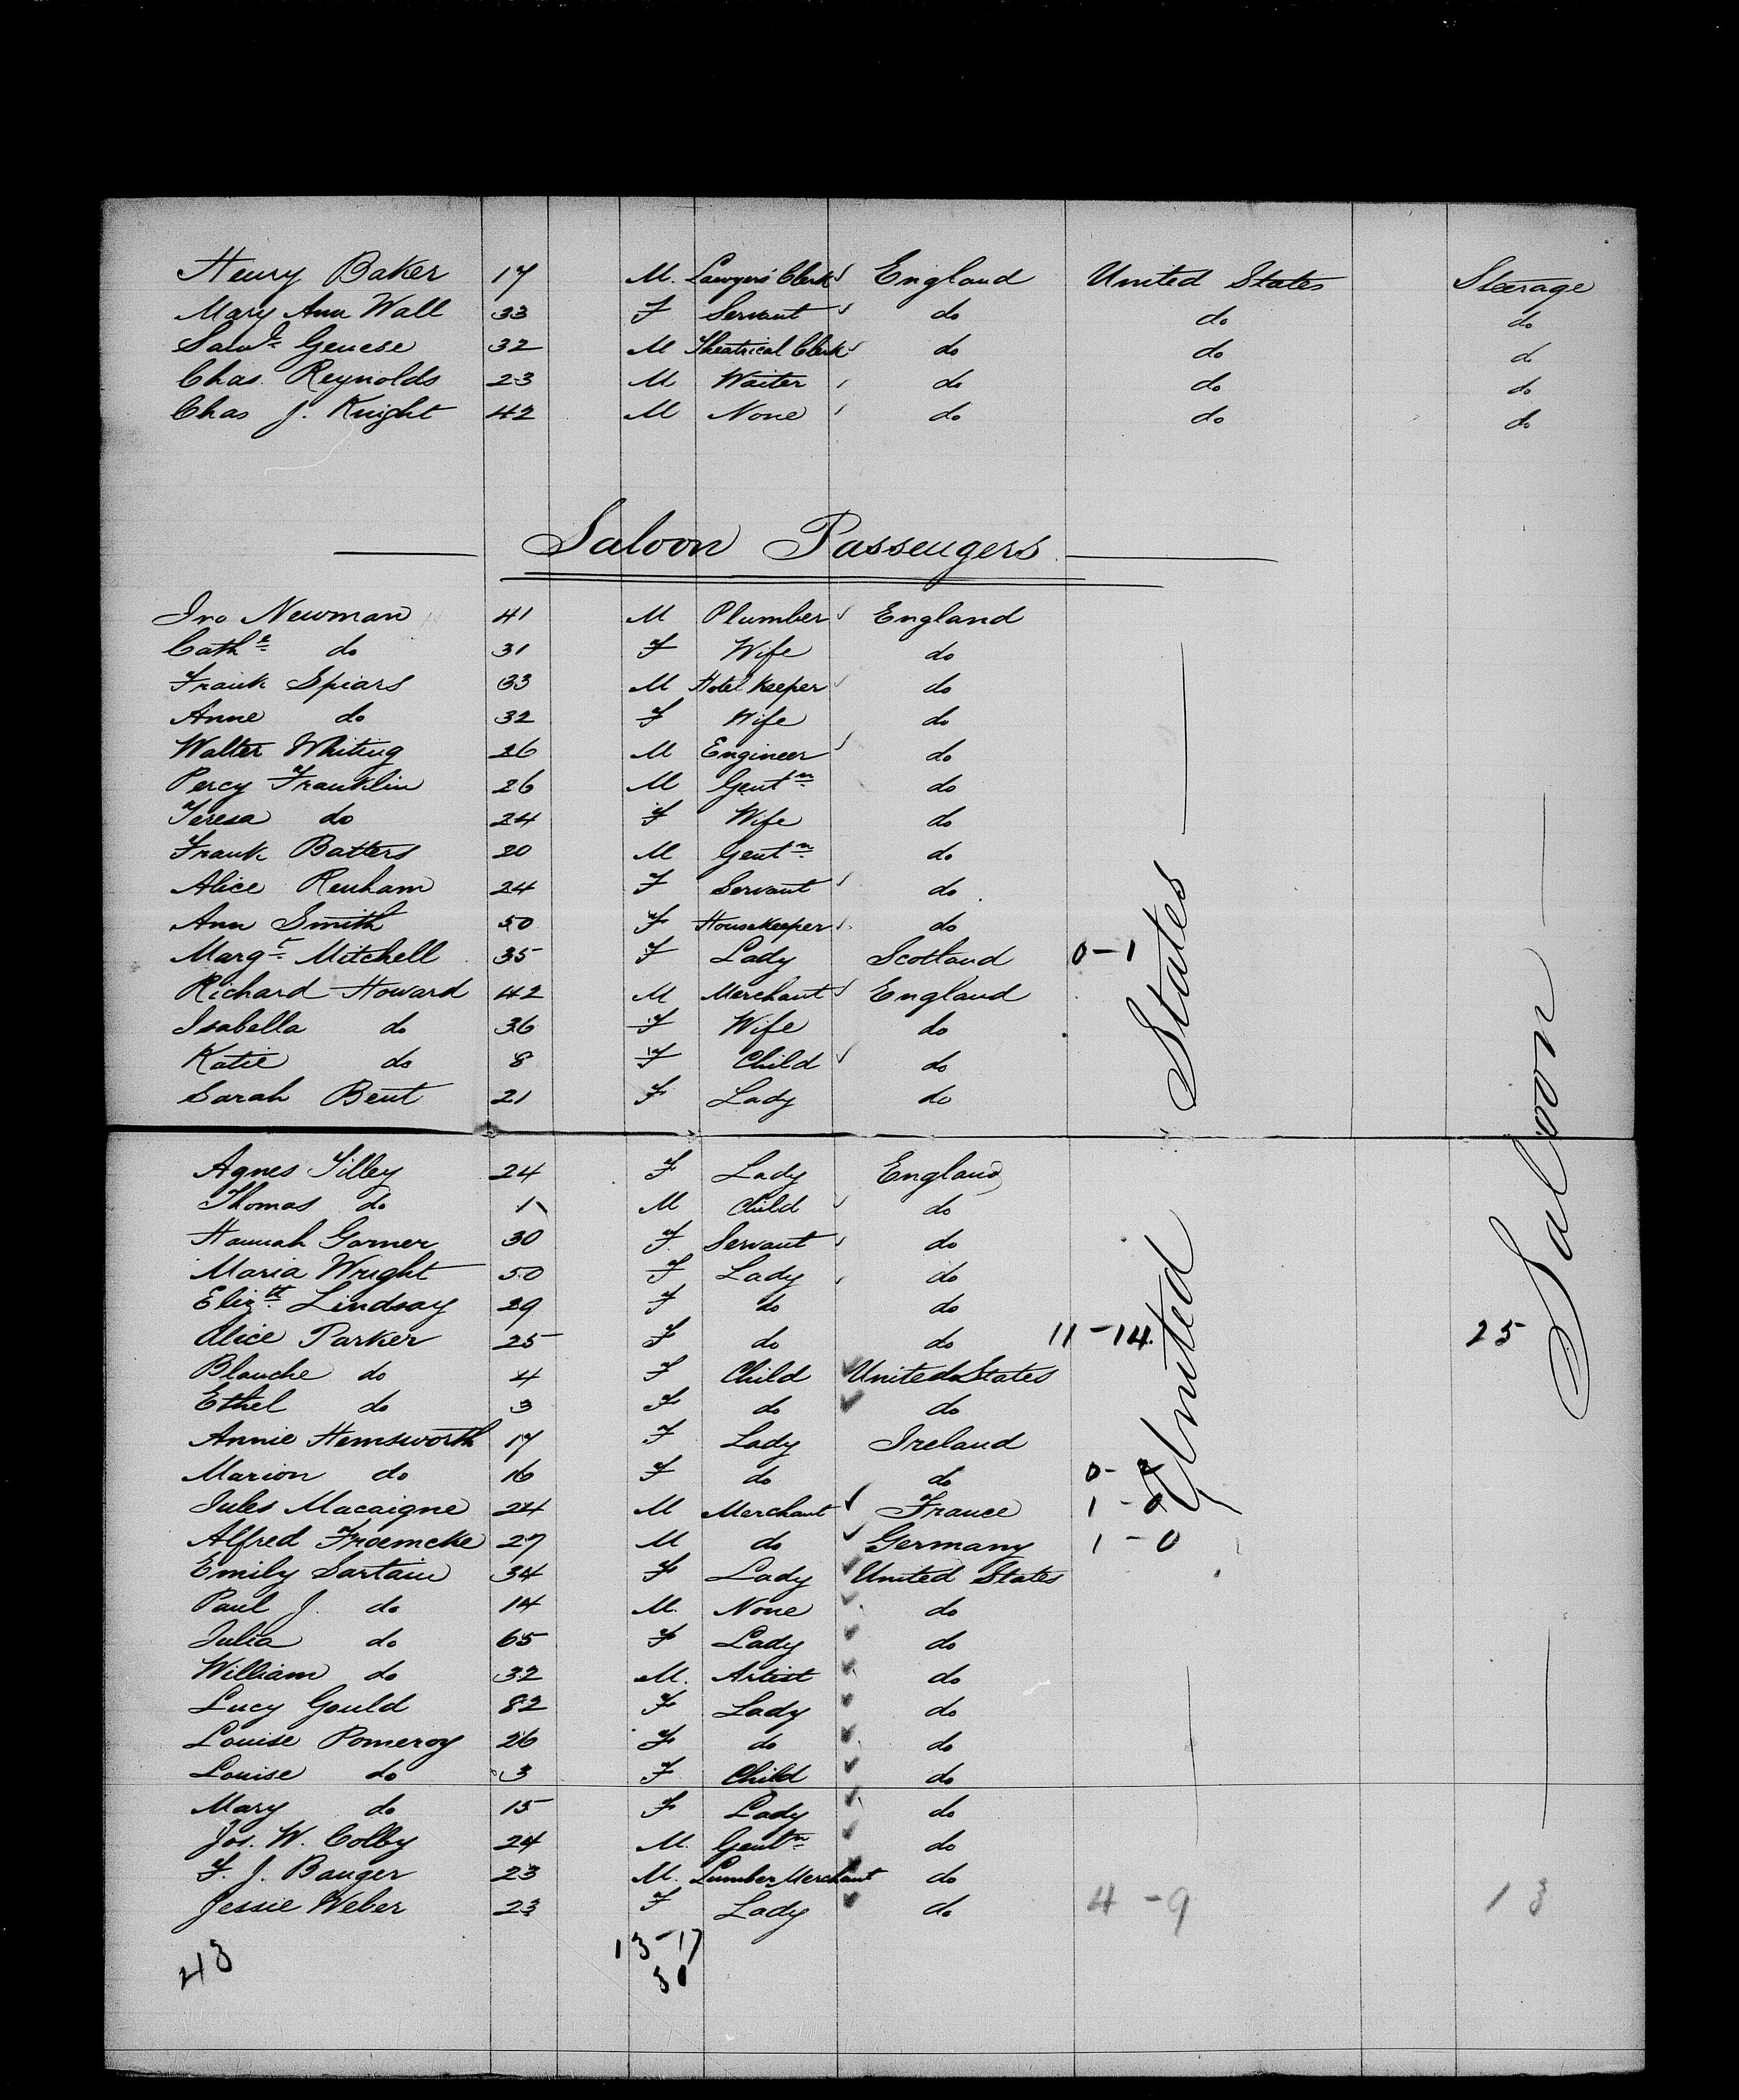 Henry Baker 17 M. Lawyers' Clerk England United States Steerage
Mary Ann Wall 33 F Servant do do do
Saml. Genese 32 M Theatrical Clerk do do do
Chas. Reynolds 23 M Waiter do do do
Chas J. Knight 42 M None do do do
Saloon Passengers
Jno Newman 41 M Plumber England
Cathe do 31 F Wife do
Frank Spiars 33 M Hotel Keeper do
Anne do 32 F Wife do
Walter Whiting 26 M Engineer do
Percy Franklin 26 M Gentn do
Teresa do 24 F Wife do
Frank Batters 20 M Gentn do
Alice Renham 24 F Servant do
Ann Smith 50 F Housekeeper do
Margt Mitchell 35 F Lady Scotland 0-1
Richard Howard 42 M Merchant England
Isabella do 36 F Wife do
Katie do 8 F Child do
Sarah Bent 21 F Lady do
Agnes Tilley 24 F Lady England
Thomas do 1 M Child do
Hannah Garner 30 F. Servant do
Maria Wright 50 F Lady do
Elizth Lindsay 29 F do do
Alice Parker 25 F do do 11-14. 25
Blanche do 4 F Child United States
Ethel do 3 F do do
Annie Hemsworth 17 F Lady Ireland
Marion do 16 F do do 0-2
Jules Macaigne 24 M Merchant France 1-0
Alfred Froemcke 27 M do Germany 1-0
Emily Sartain 34 F Lady United States
Paul J. do 14 M. None do
Julia do 65 F Lady do
William do 32 M. Artist do
Lucy Gould 82 F Lady do
Louise Pomeroy 26 F do do
Louise do 3 F Child do
Mary do 15 F Lady do
Jos. W. Colby 24 M. Gentn do
F. J. Bauger 23 M. Lumber Merchant do
Jessie Weber 23 F Lady do 4-9 13
United States
Saloon
43 13-17
30